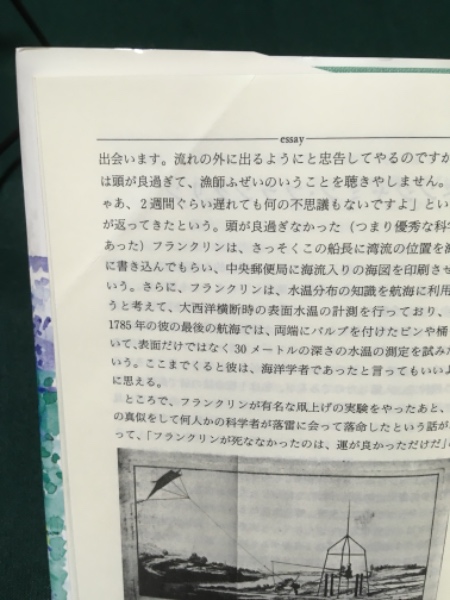 essay
出会います。流れの外に出るようにと忠告してやるのですが
は頭が良過ぎて、漁師ふぜいのいうことを聴きやしません。
ゃあ、2週間ぐらい遅れても何の不思議もないですよ」とい
が返ってきたという。頭が良過ぎなかった（つまり優秀な科学
あった）フランクリンは、さっそくこの船長に湾流の位置を海
に書き込んでもらい、中央郵便局に海流入りの海図を印刷させ
いう。さらに、フランクリンは、水温分布の知識を航海に利用
うと考えて、大西洋横断時の表面水温の計測を行っており、
1785年の彼の最後の航海では、両端にバルブを付けたビンや桶
いて、表面だけではなく30メートルの深さの水温の測定を試みた
いう。ここまでくると彼は、海洋学者であったと言ってもいいよ
に思える。
ところで、フランクリンが有名な凧上げの実験をやったあと、
の真似をして何人かの科学者が落雷に会って落命したという話が
って、「フランクリンが死ななかったのは、運が良かっただけだ」